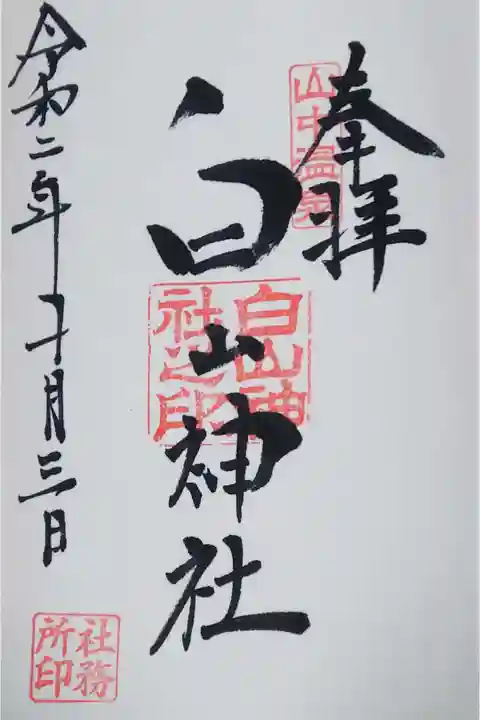 奉拝
山中温泉
白山神社
白山神
社之印
令和二年十月三日
社務
所印